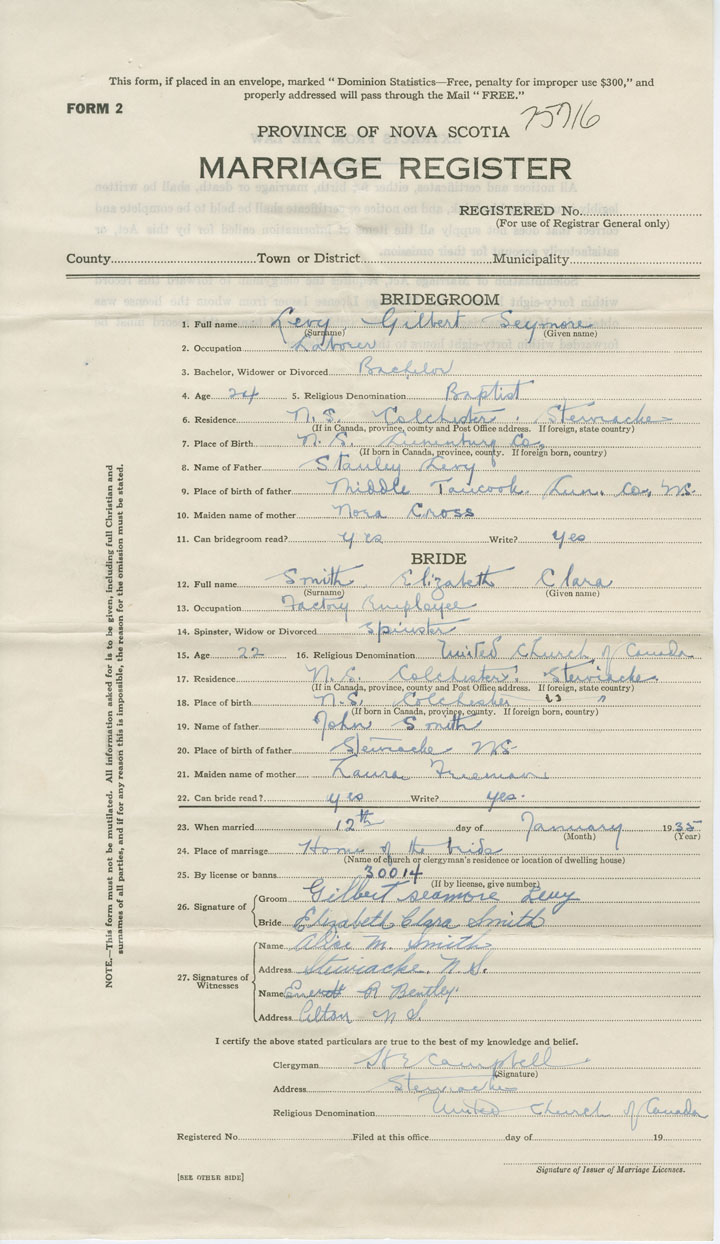 This form, if placed in an envelope, marked " Dominion Statistics—Free, penalty for improper use $300," and
properly addressed will pass through the Mail " FREE."
FORM 2
25716
PROVINCE OF NOVA SCOTIA
MARRIAGE REGISTER
REGISTERED No.
(For use of Registrar General only)
County Town or District Municipality
BRIDEGROOM
1. Full name Levy Gilbert Seymore
(Surname) (Given name)
2. Occupation Laborer
3. Bachelor, Widower or Divorced Bachelor
4. Age 24 5. Religious Denomination Baptist
6. Residence N. S. Colchester. Stewiacke
(If in Canada, province, county and Post Office address. If foreign, state country)
7. Place of Birth N. S. Lunenburg Co.
(If born in Canada, province, county. If foreign born, country)
8. Name of Father Stanley Levy
9. Place of birth of father Middle Tancook. Lun. Co., N.S.
10. Maiden name of mother Nora Cross
11. Can bridegroom read? yes Write? yes
BRIDE
12. Full name Smith, Elizabeth Clara
(Surname) (Given name)
13. Occupation Factory Employee
14. Spinster, Widow or Divorced Spinster
15. Age 22 16. Religious Denomination United Church of Canada
17. Residence N. S. Colchester. Stewiacke
(If in Canada, province, county and Post Office address. If foreign, state country)
18. Place of birth N.S. Colchester " "
(If born in Canada, province, county. If foreign born, country)
19. Name of father John Smith
20. Place of birth of father Stewiacke N.S.
21. Maiden name of mother Laura Freeman
22. Can bride read? yes Write? yes.
23. When married 12th day of January 1935
(Month) (Year)
24. Place of marriage Home of the bride
(Name of church or clergyman's residence or location of dwelling house)
25. By license or banns 30014
(If by license, give number)
26. Signature of Groom Gilbert seamore Levy
Bride Elizabeth Clara Smith
27. Signatures of Witnesses
Name Alice M. Smith
Address Stewiacke. N.S.
Name Everett R Bentley.
Address Alton N S.
I certify the above stated particulars are true to the best of my knowledge and belief.
Clergyman Campbell
(Signature)
Address Stewiacke
Religious Denomination United Church of Canada
Registered No. Filed at this office day of 19
Signature of Issuer of Marriage Licenses.
[SEE OTHER SIDE]
NOTE.—This form must not be mutilated. All information asked for is to be given, including full Christian and
surnames of all parties, and if for any reason this is impossible, the reason for the omission must be stated.